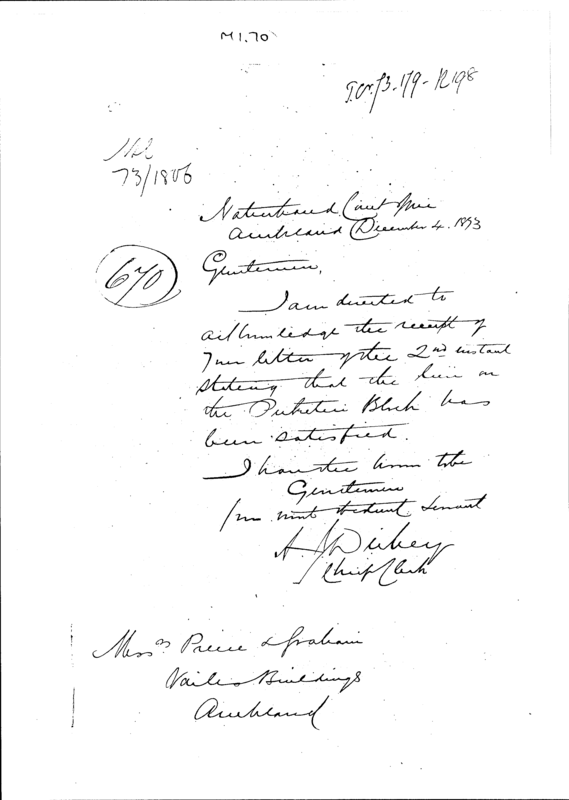 M1.70
T.Cr. 73.179-R198
73/1806
670
Native Land Court Office
Auckland December 4. 1873
Gentlemen,
I am directed to
acknowledge the receipt of
Your letter of the 2nd instant
stating that the lien on
the Puketui Block has
been satisfied.
I have the honor to be
Gentlemen
Your most obedient servant
A J Dickey
Chief Clerk
Messrs Preece & Graham
Vaile Buildings
Auckland